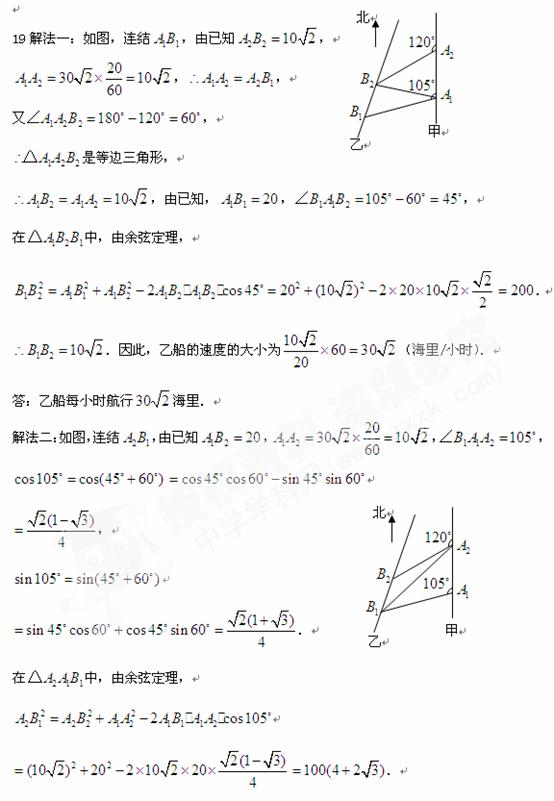 19解法一：如图，连结A₁B₁，由已知A₂B₂=10√2，
A₁A₂=30√2×20/60=10√2，∴A₁A₂=A₂B₁，
又∠A₁A₂B₂=180°−120°=60°，
∴△A₁A₂B₂是等边三角形，
∴A₁B₂=A₁A₂=10√2，由已知，A₁B₁=20，∠B₁A₁B₂=105°−60°=45°，
在△A₁B₂B₁中，由余弦定理，
B₁B₂²=A₁B₁²+A₁B₂²−2A₁B₂□A₁B₂□cos45°=20²+(10√2)²−2×20×10√2×√2/2=200．
∴B₁B₂=10√2．因此，乙船的速度的大小为10√2/20×60=30√2（海里/小时）．
答：乙船每小时航行30√2海里．
解法二：如图，连结A₂B₁，由已知A₁B₂=20，A₁A₂=30√2×20/60=10√2，∠B₁A₁A₂=105°，
cos105°=cos(45°+60°)=cos45°cos60°−sin45°sin60°
=√2(1−√3)/4，
sin105°=sin(45°+60°)
=sin45°cos60°+cos45°sin60°=√2(1+√3)/4．
在△A₂A₁B₁中，由余弦定理，
A₂B₁²=A₂B₂²+A₁A₂²−2A₁B₁□A₁A₂□cos105°
=(10√2)²+20²−2×10√2×20×√2(1−√3)/4=100(4+2√3)．
北
120°
A₂
B₂
105°
A₁
B₁
乙
甲
北
120°
A₂
B₂
105°
A₁
B₁
乙
甲